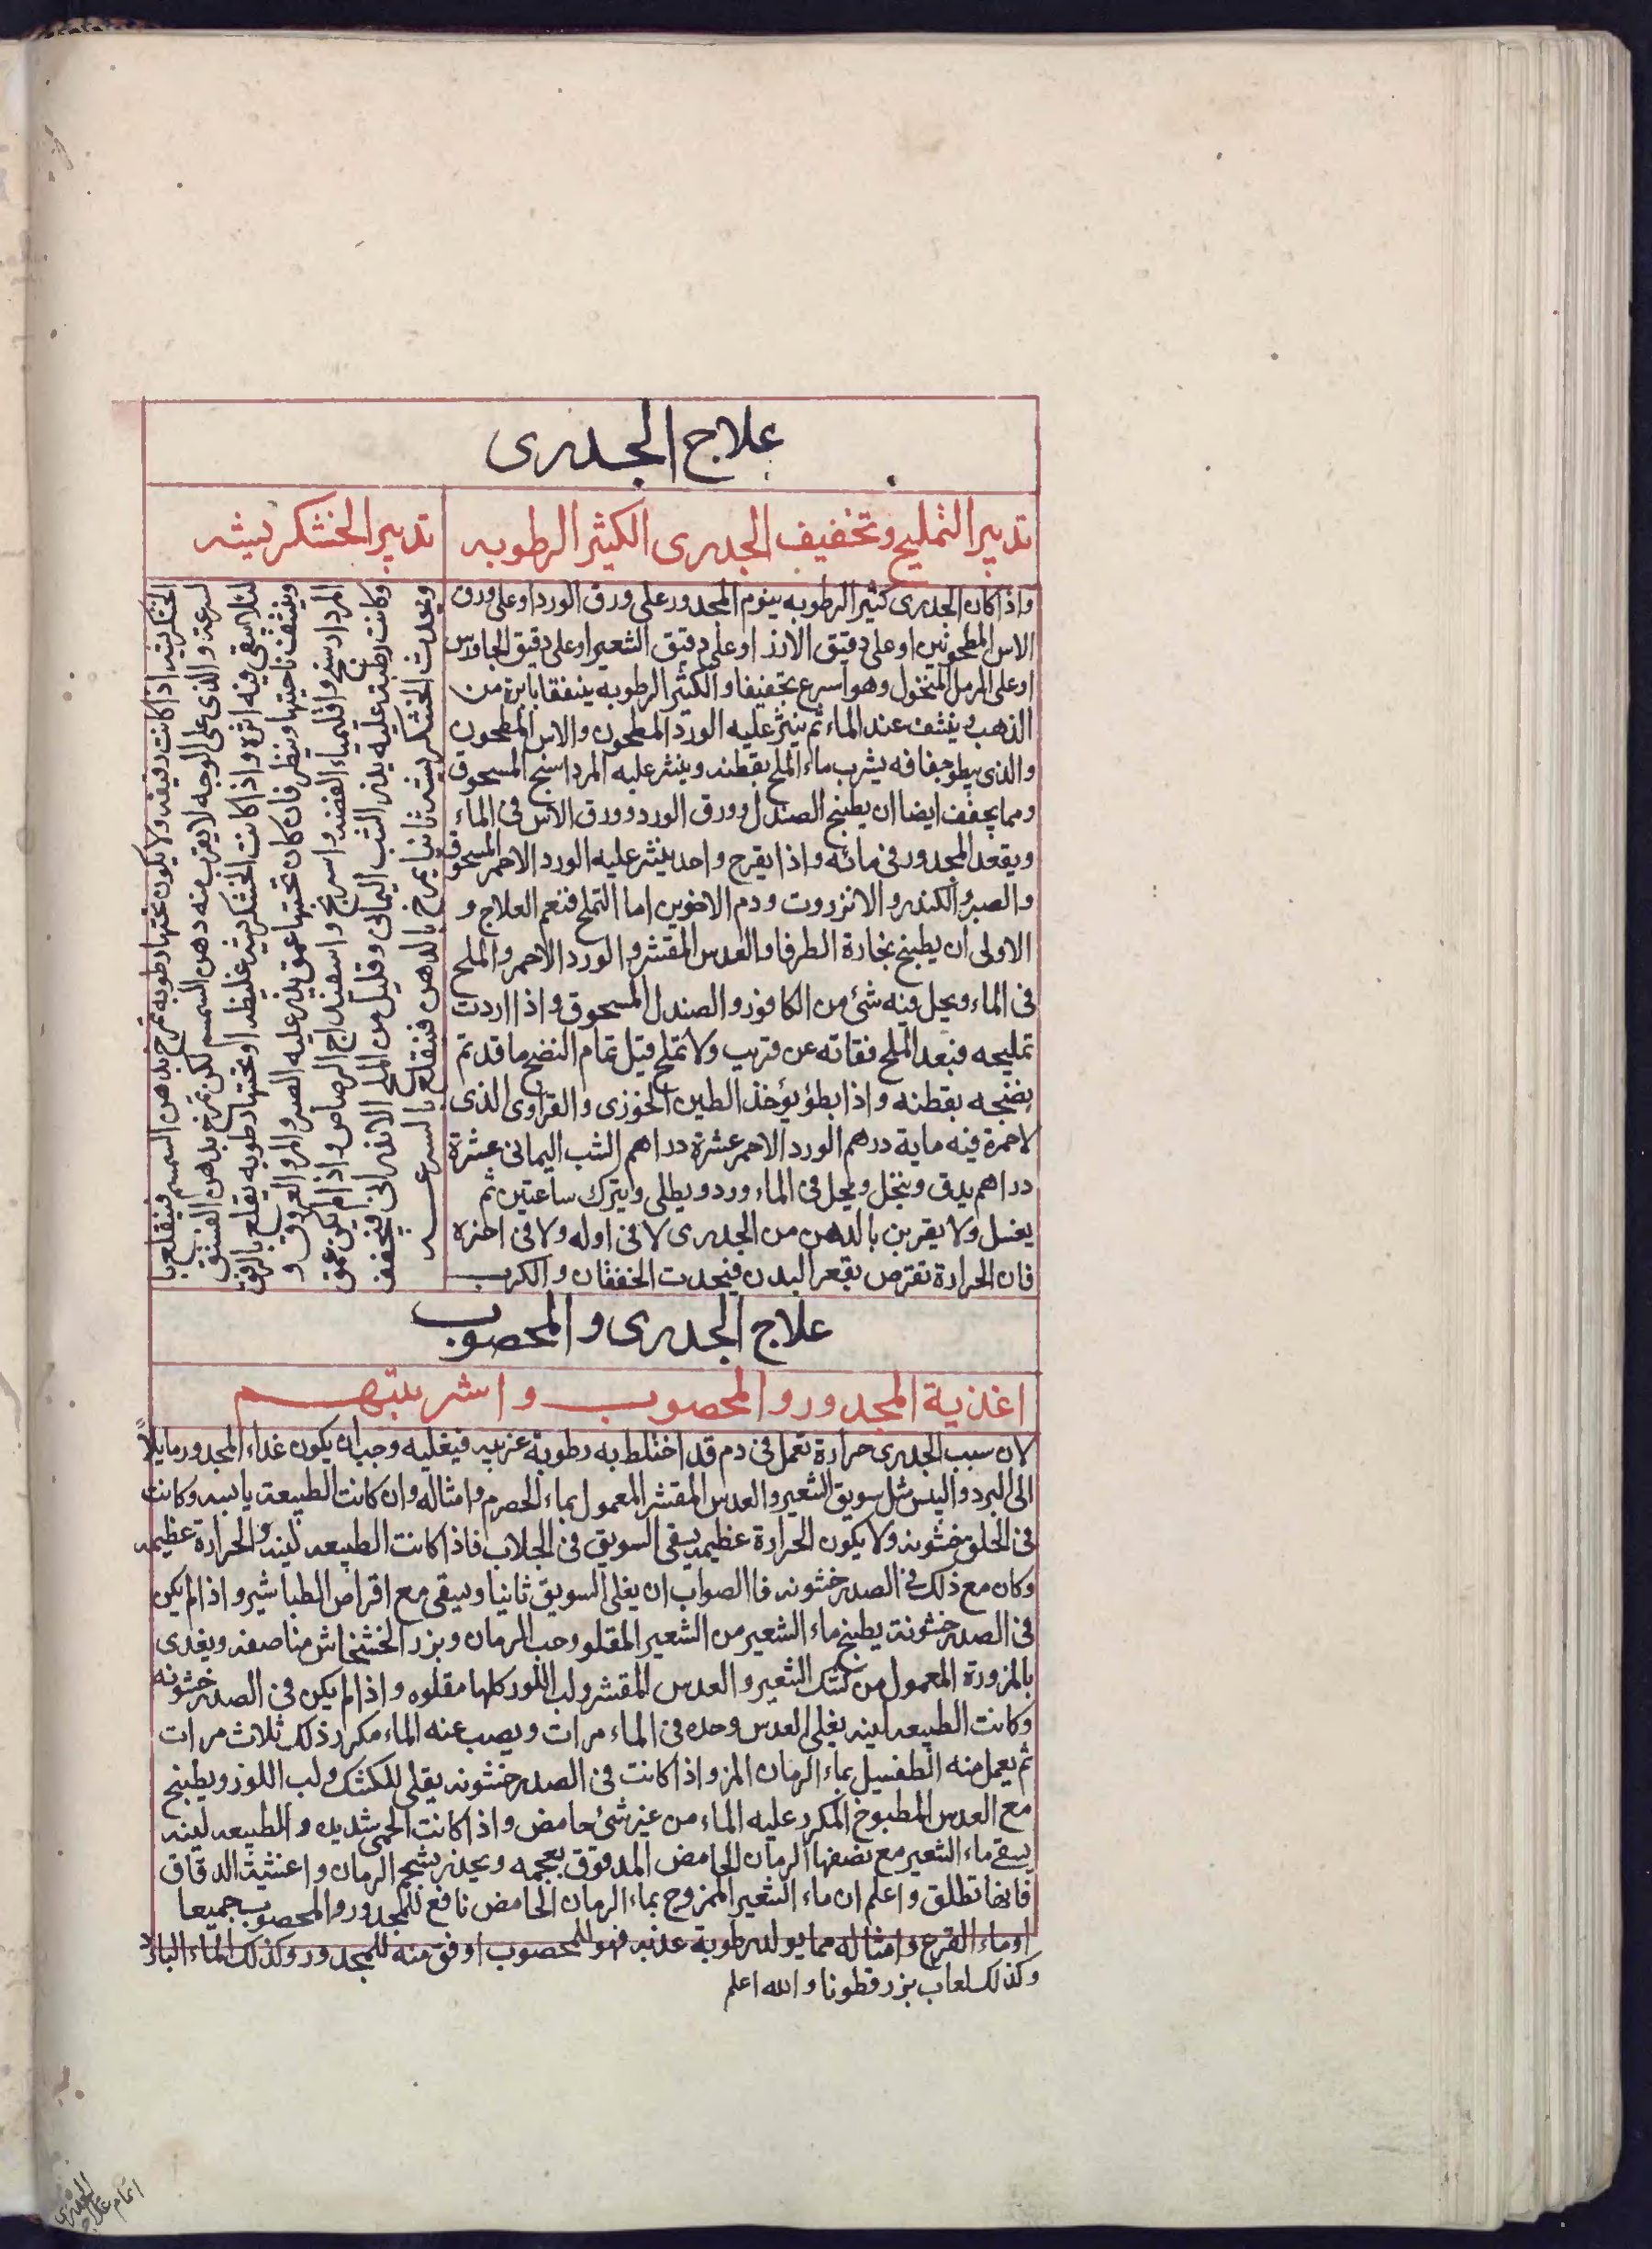 علاج الجدرى
تدبير التمليح وتخفيف الجدرى الكثير الرطوبه
واذا كان الجدرى كثير الرطوبه ينوم المجدور على ورق الورد او على ورق
الاس المطحونين او على دقيق الارز او على دقيق الشعير او على دقيق الجاورس
او على الرمل المنخول وهو اسرع تجفيفا والكثير الرطوبه ينفقا بابرة من
الذهب وينشف عند الماء ثم ينثر عليه الورد المطحون والاس المطحون
والذى يبطو جفافه يشرب ماء الملح بقطنه وينثر عليه المرداسنج المسحوق
ومما يجفف ايضا ان يطبخ الصندل وورق الورد وورق الاس فى الماء
ويقعد المجدور فى مائه واذا يقرح واحد ينثر عليه الورد الاحمر المسحوق
والصبر والكندر والانزروت ودم الاخوين اما التملح فنعم العلاج و
الاولى ان يطبخ نجارة الطرفا والعدس المقشر والورد الاحمر والملح
فى الماء ويحل فيه شئ من الكافور والصندل المسحوق واذا اردت
تمليحه فبعد الملح فقاته عن قريب ولا تملح قبل تمام النضج ما قد تم
بضجه بقطنه واذا بطؤ يؤخذ الطين الخوزى والقراوى الذى
لا حمرة فيه ماية درهم الورد الاحمر عشرة دراهم الشب اليمانى عشرة
دراهم يدق وينخل ويحل فى الماء ورد ويطلى ويترك ساعتين ثم
يغسل ولا يقربن بالدهن من الجدرى لا فى اوله ولا فى اخره
فان الحرارة تقترص بقعر البدن فيحدث الخفقان والكرب
تدبير الخشكريشه
الخشكريشه اذا كانت رقيقه ولا يكون تحتها رطوبه تمرخ بدهن السمسم فينقلع با
لسرعة والذى على الوجه لا يقرب منه دهن السمسم لكن تمرخ بدهن الفستق
لئلا يبقى فيه اثره واذا كانت الخشكريشه غليظه او تحتها رطوبه يقلع بالرفق
وينشف ناحيتها وينظر فان كان تحتها عمق يذر عليه الصبر والمر والعروق و
المرداسنج واقليمياء الفضه واسرنج واسفيداج الرصاص واذا لم يكن عمق
وكانت رطبة عليه يذر الشب اليمانى وقليل من الملح الاندرانى فيجفف
ويحدث الخشكريشه ثانيا يمرخ بالدهن فينقلع بالسرعه
علاج الجدرى والمحصوب
اغذية المجدور والمحصوب واشربتهم
لان سبب الجدرى حرارة تعمل فى دم قد اختلط به رطوبة غريبه فيغليه وجب ان يكون غداء المجدور مايلاً
الى البرد واليبس مثل سويق الشعير والعدس المقشر المعمول بماء الحصرم وامثاله وان كانت الطبيعة يابسه وكانت
فى الحلق خشونه ولا يكون الحرارة عظيمه يسقى السويق فى الجلاب فاذا كانت الطبيعه لينه والحرارة عظيمه
وكان مع ذلك فى الصدر خشونه فالصواب ان يغلى السويق ثانيا ويسقى مع اقراص الطباشير واذا لم يكن
فى الصدر خشونة يطبخ ماء الشعير من الشعير المقلو وحب الرمان وبزر الخشخاش مناصفه ويغدى
بالمزورة المعمول من كشك الشعير والعدس المقشر ولب اللوز كلها مقلوه واذا لم يكن فى الصدر خشونه
وكانت الطبيعه لينه يغلى العدس وحده فى الماء مرات ويصب عنه الماء مكرر ذلك ثلاث مرات
ثم يعمل منه الطفشيل بماء الرمان المز واذا كانت فى الصدر خشونه يقلى للكشك ولب اللوز ويطبخ
مع العدس المطبوخ المكرر عليه الماء من غير شئ حامض واذا كانت الحمى شديده والطبيعه لينه
يسقى ماء الشعير مع نصفها الرمان الحامض المدقوق بعجمه ويحذر بشحم الرمان واغشية الدقاق
فانها تطلق واعلم ان ماء الشعير الممزوج بماء الرمان الحامض نافع للمجدور والمحصوب جميعا
اوماء القرع وامثاله مما يولد رطوبة عذبه فهو للمحصوب اوفق منه للمجدور وكذلك الماء البارد
وكذلك لعاب بزر قطونا والله اعلم
اتمام علاج الجدرى